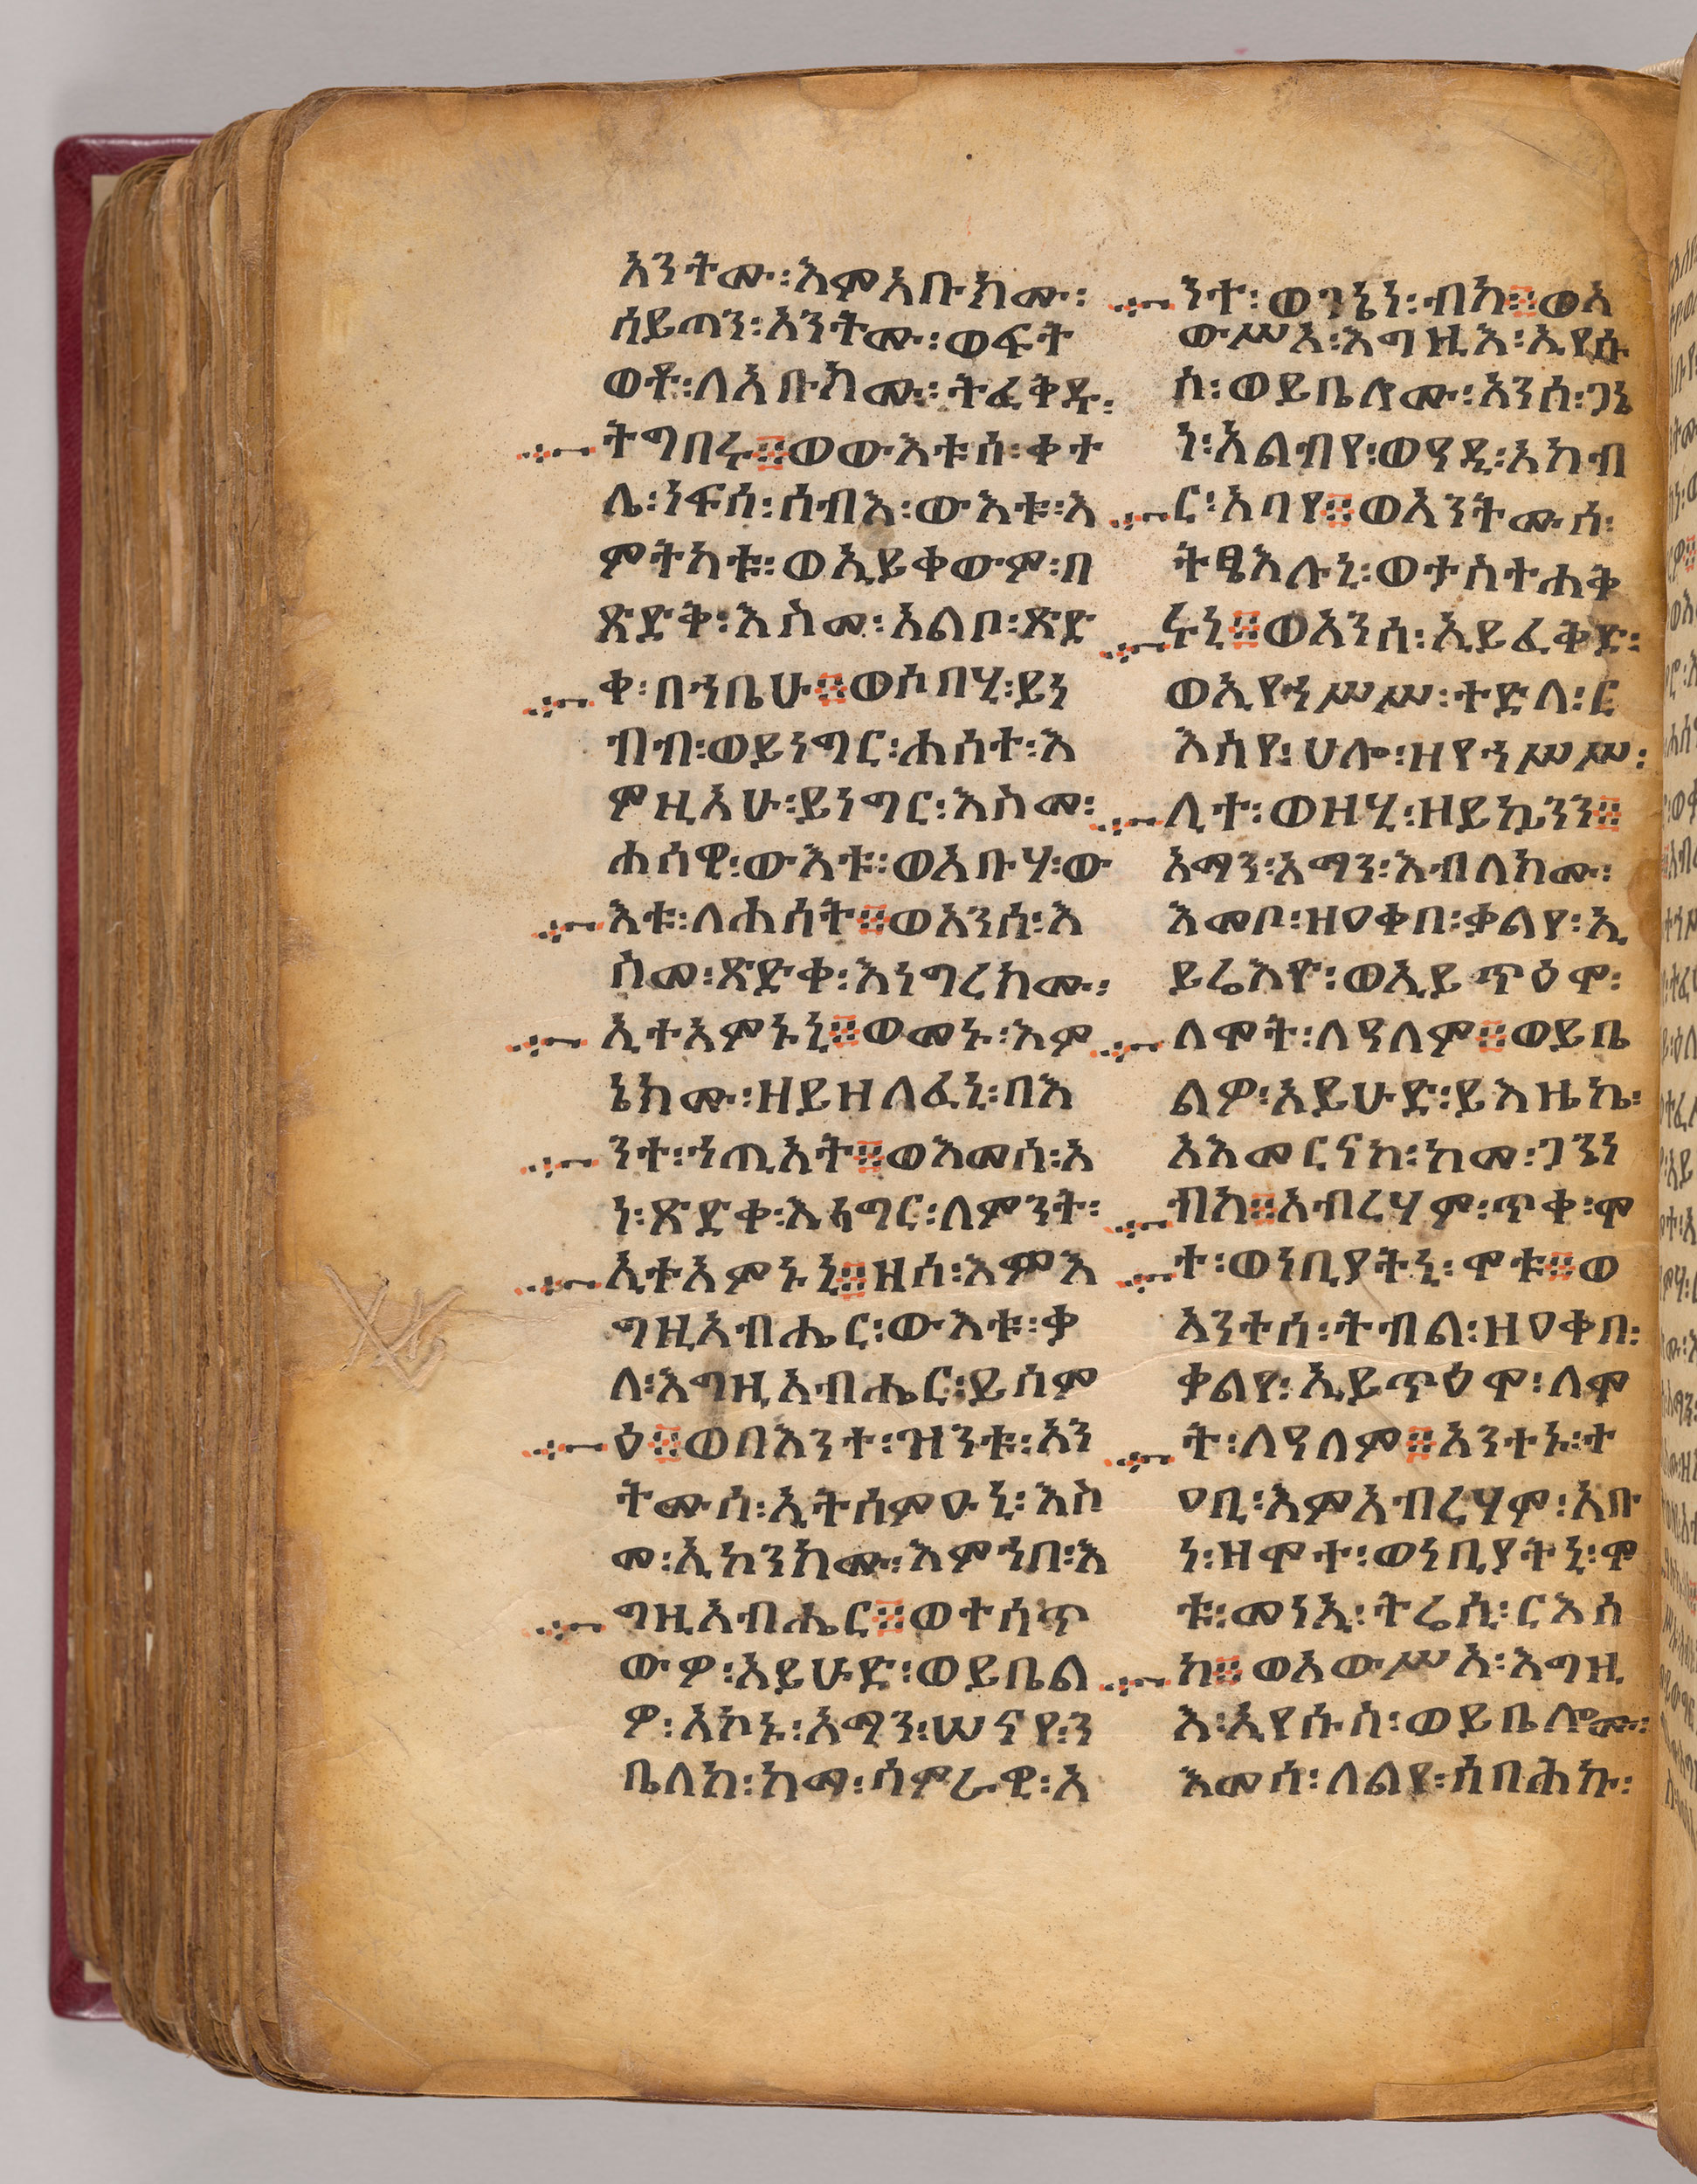 አንትሙ፡እምአቡክሙ፡
ሰይጣን፡አንትሙ፡ወፍት
ወቶ፡ለአቡክሙ፡ትፈቅዱ፡
ትግበሩ፨ወውእቱሰ፡ቀታ
ሌ፡ነፍሰ፡ሰብእ፡ውእቱ፡እ
ምትካቱ፡ወኢይቀውም፡በ
ጽድቅ፡እስመ፡አልቦ፡ጽድ
ቀ፡በኀቤሁ፨ወሶበሂ፡ይነ
ብብ፡ወይነግር፡ሐሰተ፡እ
ምዚአሁ፡ይነግር፡እስመ፡
ሐሰዊ፡ውእቱ፡ወአቡሃ፡ው
እቱ፡ለሐሰት፨ወአንሰ፡እ
ስመ፡ጽድቀ፡እነግረክሙ፡
ኢተአምኑኒ፨ወመኑ፡እም
ኔክሙ፡ዘይዘለፈኒ፡በእ
ንተ፡ኀጢአት፨ወእመሰ፡አ
ነ፡ጽድቀ፡እነግር፡ለምንት፡
ኢተአምኑኒ፨ዘሰ፡እምእ
ግዚአብሔር፡ውእቱ፡ቃ
ለ፡እግዚአብሔር፡ይሰም
ዕ፨ወበእንተ፡ዝንቱ፡አን
ትሙሰ፡ኢትሰምዑኒ፡እስ
መ፡ኢኮንክሙ፡እምኀበ፡እ
ግዚአብሔር፨ወተሰጥ
ውዎ፡አይሁድ፡ወይቤል
ዎ፡አኮኑ፡አማን፡ሠናየ፡ን
ቤለከ፡ከመ፡ሳምራዊ፡አ
ንተ፡ወጋኔን፡ብከ፨ወአ
ውሥአ፡እግዚእ፡ኢየሱ
ስ፡ወይቤሎሙ፡አንሰ፡ጋኔ
ነ፡አልብየ፡ወዓዲ፡አከብ
ር፡አባየ፨ወአንትሙሰ፡
ትፄእሉኒ፡ወታስተሐቅ
ሩኒ፨ወአንሰ፡ኢይፈቅድ፡
ወኢየኀሥሥ፡ተድላ፡ር
እስየ፡ሀሎ፡ዘየኀሥሥ፡
ሊተ፡ወዝሂ፡ዘይኴንን፨
አማን፡አማን፡እብለክሙ፡
እመቦ፡ዘዐቀበ፡ቃልየ፡ኢ
ይሬእዮ፡ወኢይጥዕሞ፡
ለሞት፡ለዓለም፨ወይቤ
ልዎ፡አይሁድ፡ይእዜኬ፡
አእመርናከ፡ከመ፡ጋኔነ
ብከ፨አብረሃም፡ጥቀ፡ሞ
ተ፡ወነቢያትኒ፡ሞቱ፨ወ
አንተሰ፡ትብል፡ዘዐቀበ፡
ቃልየ፡ኢይጥዕሞ፡ለሞ
ት፡ለዓለም፨አንተኑ፡ተ
ዐቢ፡እምአብረሃም፡አቡ
ነ፡ዘሞተ፡ወነቢያትኒ፡ሞ
ቱ፡መነኢ፡ትሬሲ፡ርእሰ
ከ፨ወአውሥአ፡እግዚ
እ፡ኢየሱስ፡ወይቤሎሙ፡
እመሰ፡ለልየ፡ሰበሕኩ፡